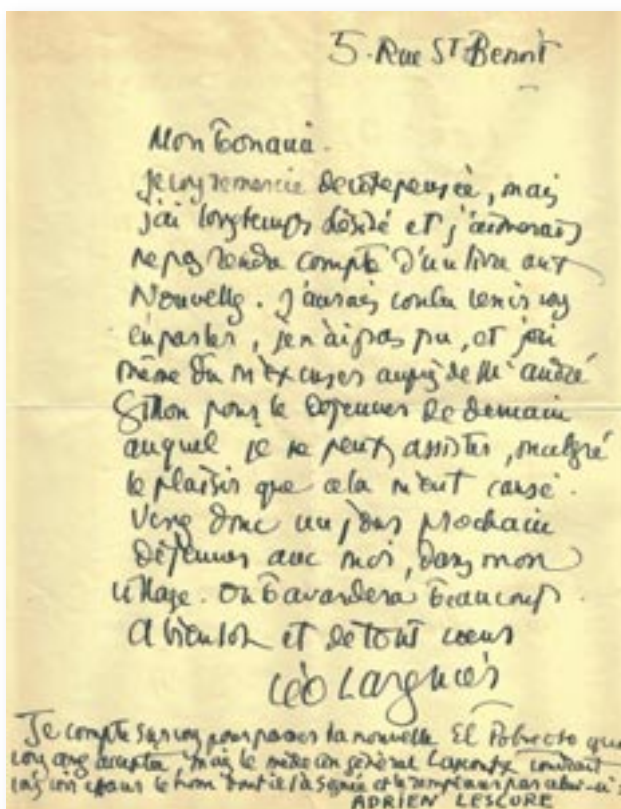 5. Rue St Benoit
Mon bon ami.
Je vous remercie de votre pensée, mais
j'ai longtemps hésité et j'aimerais
ne pas rendre compte d'un livre aux
Nouvelles. J'aurais voulu venir vous
en parler, je n'ai pas pu, et j'ai
même du m'excuser auprès de Mr André
Gillon pour le Déjeuner de demain
auquel je ne peux assister, malgré
le plaisir que cela m'eut causé.
Venez donc un jour prochain
Déjeuner avec moi, dans mon
village. On bavardera beaucoup.
A bientôt et de tout cœur
Léo Larguier
Je compte sur vous pour passer la nouvelle El Pobrecto que
vous avez acceptée, mais le médecin général voudrait
le nom dont il l'a signée et le remplacer par celui-ci :
ADRIEN LESCURE